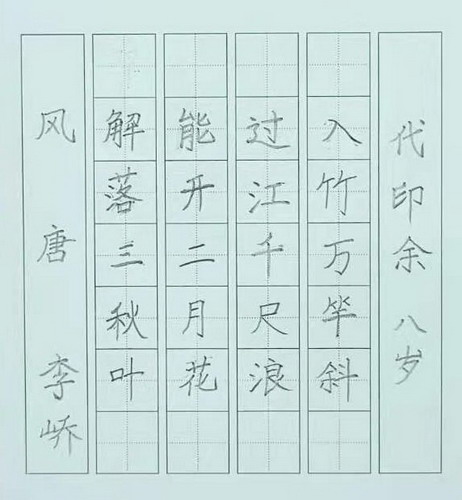 风 唐 李峤
解落三秋叶
能开二月花
过江千尺浪
入竹万竿斜
代印余 八岁